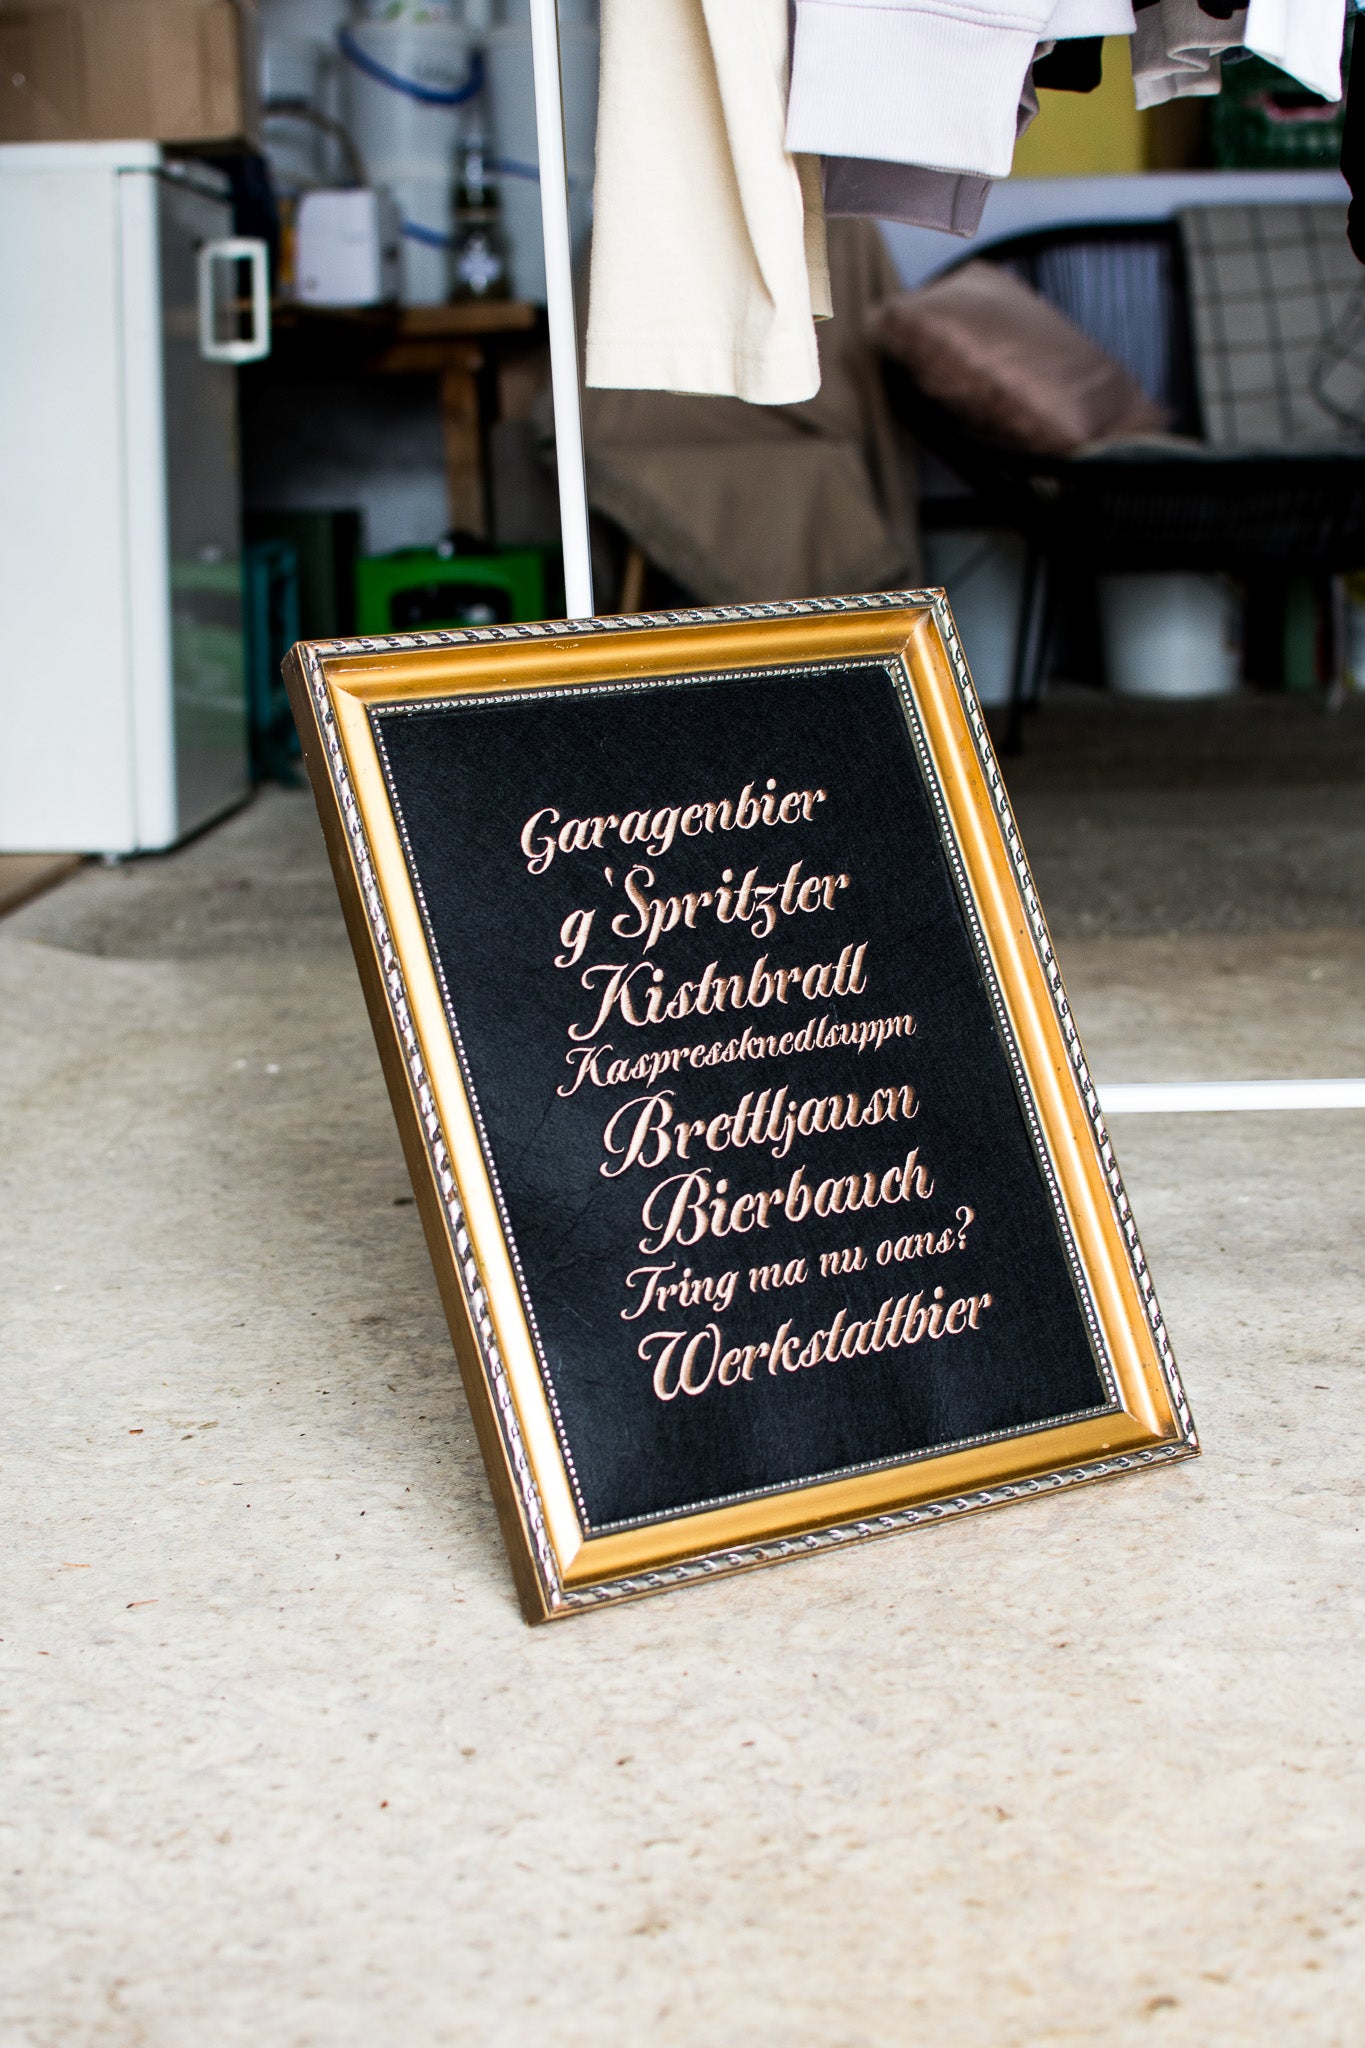 Garagenbier
g'Spritzter
Kistnbratl
Kaspressknedlsuppn
Brettljausn
Bierbauch
Tring ma nu oans?
Werkstattbier